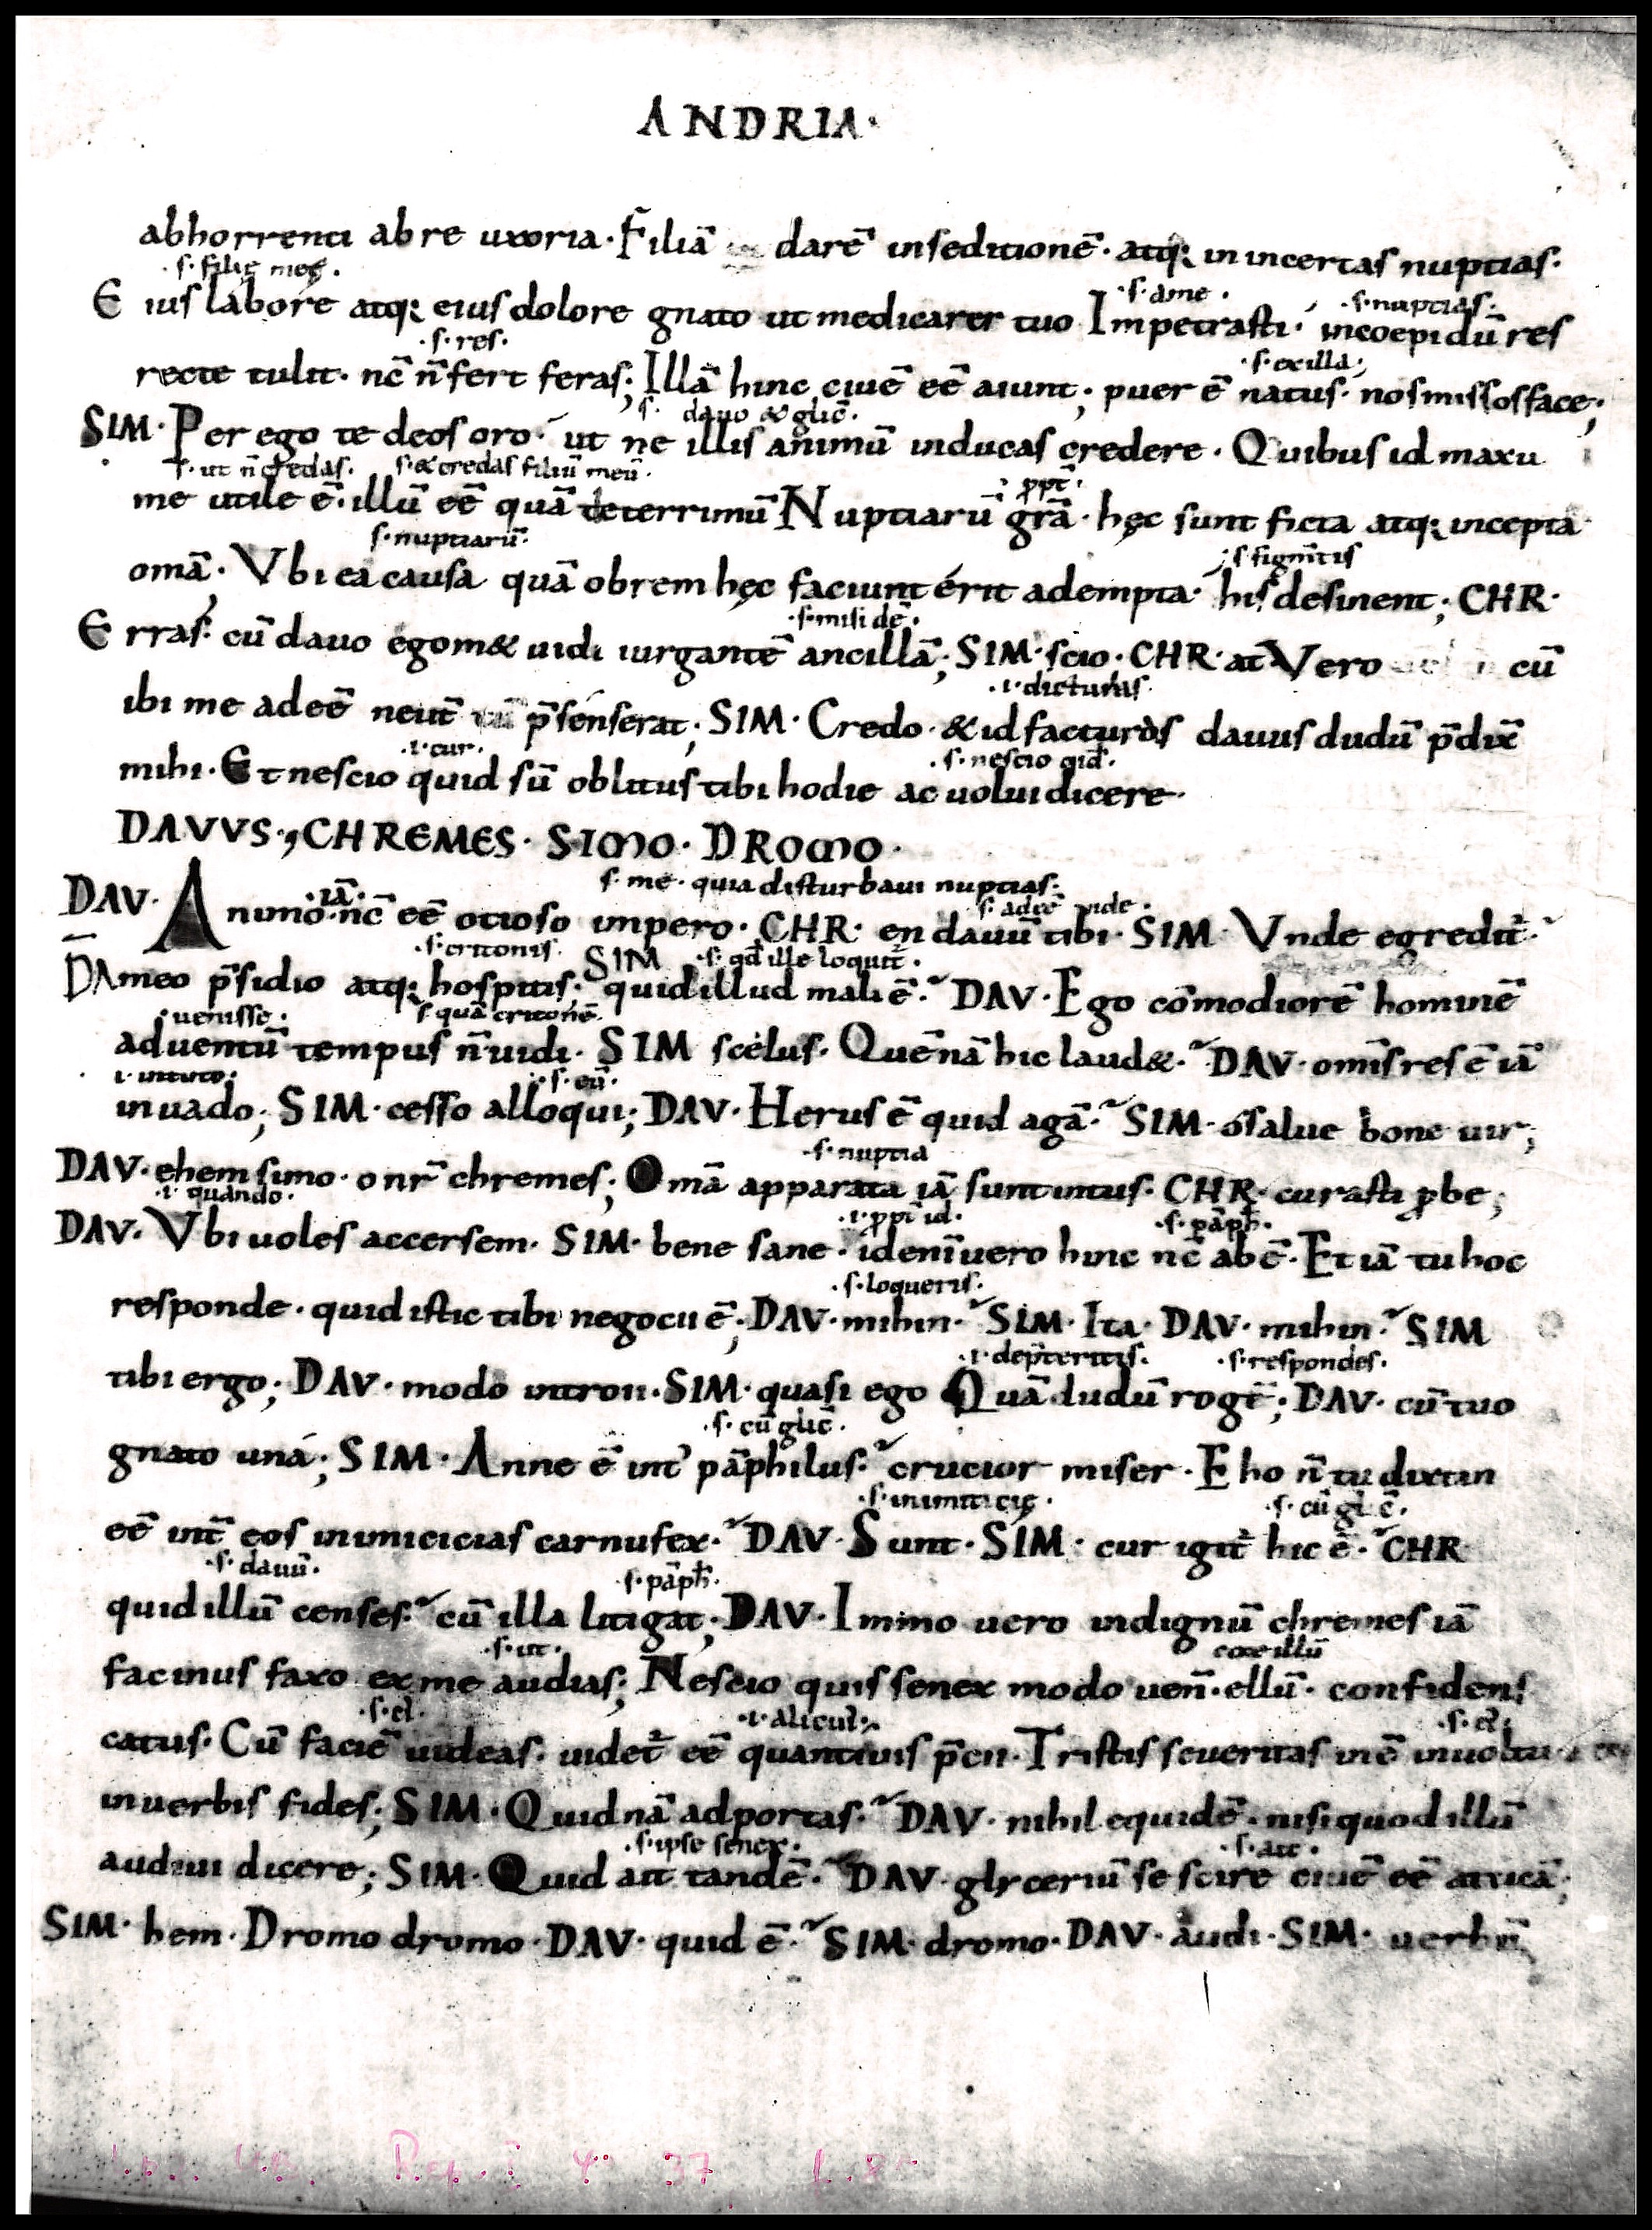 ANDRIA·
abhorrenti ab re uxoria· Filiā darē inseditionē· atq; in incertas nuptias·
·s· filię męę·
·s· ame· ·s· nuptias·
Eius labore atq; eius dolore gnato ut medicarer tuo Impetrasti· incoepi dū res
·s· res· ·s· ex illa·
recte tulit· nc̄ n̄ fert feras; Illā hinc ciuē eē aiunt; puer ē natus· nos missos face;
s· dauo & glic̄·
SIM· Per ego te deos oro· ut ne illis animū inducas credere· Quibus id maxu
s· ut n̄ credas· s· & credas filiū meū· ppt̄·
me utile ē· illū eē quā deterrimū Nuptiarū grā· hęc sunt ficta atq; incepta
s· nuptiarū· s· figm̄tis
omā· Vbi ea causa quā obrem hęc faciunt erit adempta· his desinent; CHR·
·s· misidē·
Erras· cū dauo egom& uidi iurgantē ancillā; SIM· scio· CHR· at Vero cū
·i· dicturas·
ibi me adeē neut̄ p̄senserat; SIM· Credo· & id facturos dauus dudū p̄dix̄
·i· cur· ·s· nescio qid·
mihi· Et nescio quid sū oblitus tibi hodie ac uolui dicere·
DAVVS·, CHREMES· SIMO· DROMO·
·iā· s· me· quia disturbaui nuptias· s· adeē uide·
DAV· Animo nc̄ eē otioso impero· CHR· en dauū tibi· SIM· Vnde egredit̄·
·s· critonis· SIM ·s· qd ille loquit̄·
DA meo p̄sidio atq; hospitis· quid illud mali ē· DAV· Ego cōmodiorē hominē
·uenisse· s· quā critonē·
aduentū tempus n̄ uidi· SIM scelus· Quē nā hic laud&· DAV· omīs res ē iā
·s· eū·
in uado; SIM· cesso alloqui; DAV· Herus ē quid agā· SIM· ó salue bone uir;
·s· nuptia
DAV· ehem simo· o nr̄ chremes; Omā apparata iā sunt intus· CHR· curasti pbe;
·i· quando· ·i· ppt̄ id· ·s· pāph·
DAV· Vbi uoles accersem· SIM· bene sane· id enī uero hinc nc̄ abē· Etiā tu hoc
·s· loqueris·
responde· quid istic tibi negocii ē; DAV· mihin· SIM· Ita· DAV· mihin· SIM
·i· dep̄teritis· ·s· respondes·
tibi ergo; DAV· modo introii· SIM· quasi ego Quā dudū rogē; DAV· cū tuo
·s· cū glic̄·
gnato uná; SIM· Anne ē int' pāphilus· crucior miser· Eho n̄ tu dixtin
·s· inimicicię· ·s· cū
eē int̄ eos inimicicias carnufex· DAV· Sunt· SIM· cur igit̄ hic ē· CHR
·s· dauū· ·s· pāph·
quid illū censes· cū illa litigat; DAV· Immo uero indignū chremes iā
·s· ut· ecce illū
facinus faxo ex me audias; Nescio quis senex modo uen̄· ellū· confidens
·s· et· ·s· et·
catus· Cū faciē uideas· uidet̄ eē quantiuis p̄cii· Tristis seueritas inē in uoltu
in uerbis fides; SIM· Quid nā adportas· DAV· nihil equidē· nisi quod illū
·s· ipse senex· ·s· ait·
audiui dicere; SIM· Quid ait tandē· DAV· glyceriū se scire ciuē eē atticā;
SIM· hem· Dromo dromo· DAV· quid ē· SIM· dromo· DAV· audi· SIM· uerbū